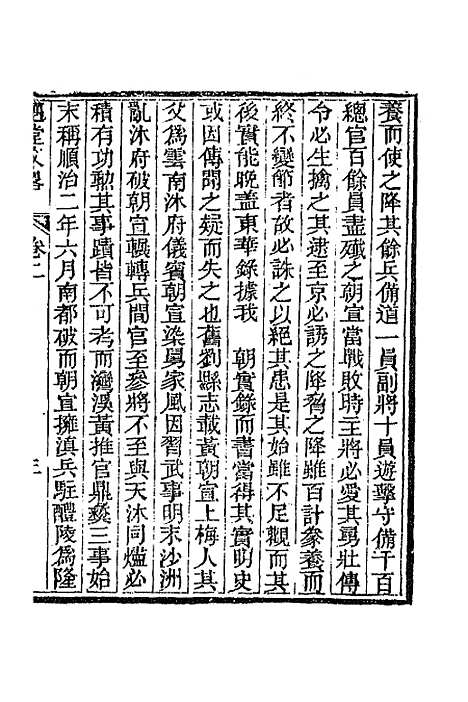 養而使之降其餘兵備道一員副將十員遊擊守備千百
總官百餘員盡殱之朝宣當戰敗時主將必愛其勇壯傳
令必生擒之其逮至京必誘之降脅之降雖百計豢養而
終不變節者故必誅之以絕其患是其始雖不足觀而其
後實能晚蓋東華錄據我　朝實錄而書當得其實明史
或因傳聞之疑而失之也舊劉縣志載黃朝宣上梅人其
父爲雲南沐府儀賓朝宣染舅家風因習武事明末沙洲
亂沐府破朝宣輾轉兵間官至參將不至與天沐同爐必
積有功勳其事蹟皆不可考而灣溪黃推官鼎彝三事始
末稱順治二年六月南都破而朝宣擁滇兵駐醴陵爲隆
堂文畧　卷二　三